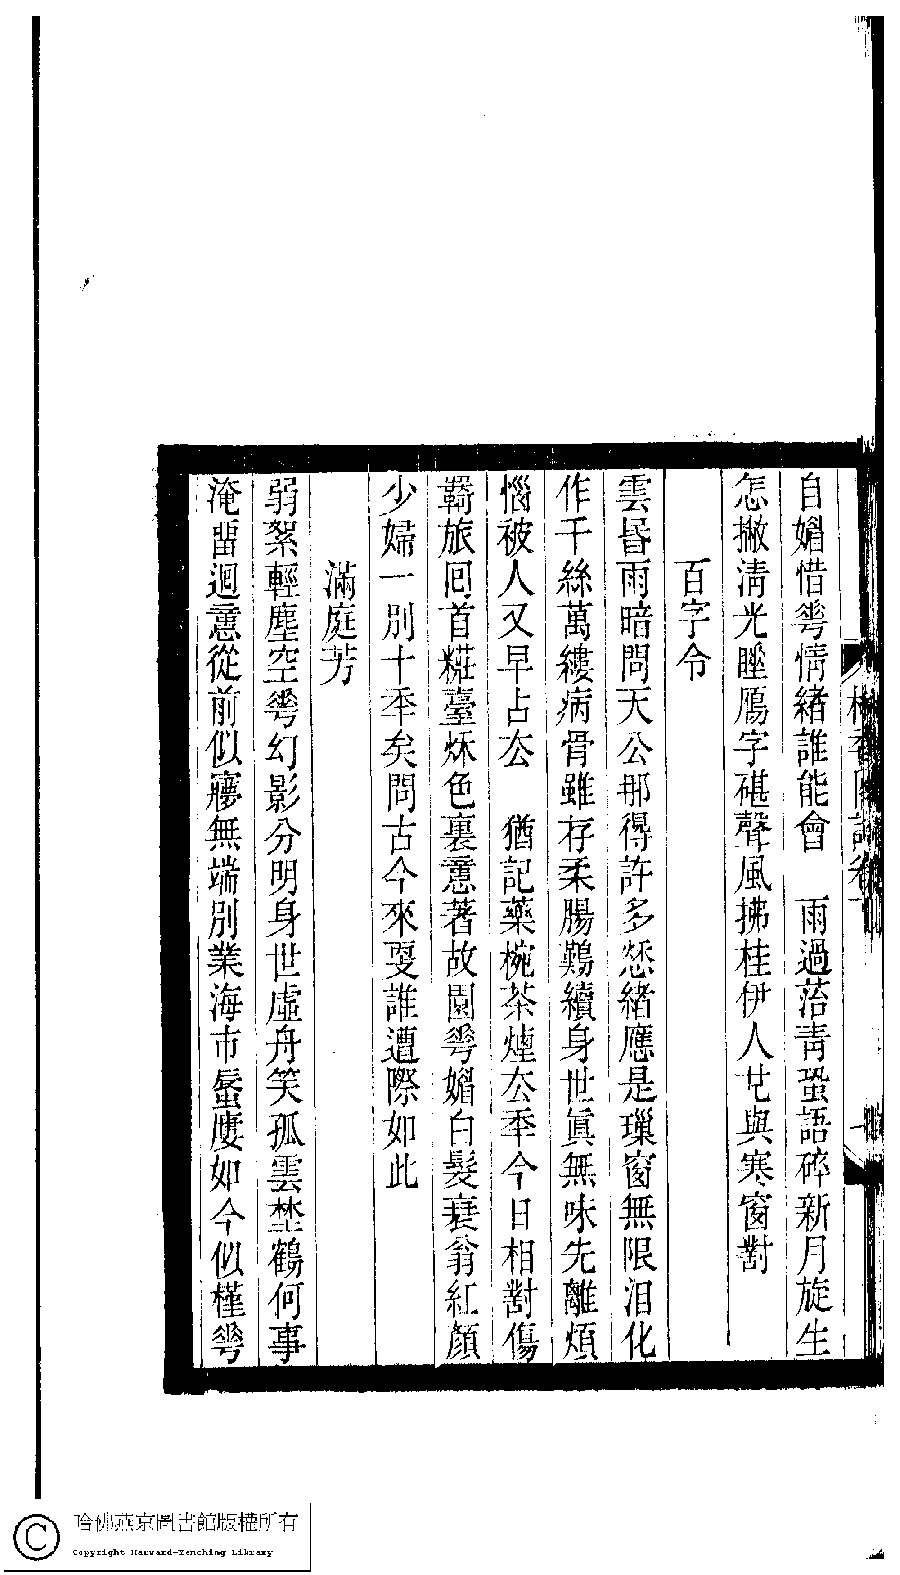 自媚惜蕚情緒誰能會　雨過菭靑蛩語碎新月旋生
怎撇淸光睡鴈字碪聲風拂桂伊人芚與寒窗對
百字令
雲昏雨暗問天公那得許多愁緒應是璅窗無限泪化
作千絲萬縷病骨雖存柔腸難續身世眞無味先離煩
惱被人又早占厺　猶記藥椀茶煙厺秊今日相對傷
羇旅囘首糚臺秌色裏意著故園蕚媚白髮衰翁紅顏
少婦一別十秊矣問古今來更誰遭際如此
滿庭芳
弱絮輕塵空蕚幻影分明身世虛舟笑孤雲埜鶴何事
淹畱迴意從前似㝱無端別業海市蜃廔如今似槿蕚
哈佛燕京圖書館版權所有
Copyright Harvard-Yenching Library